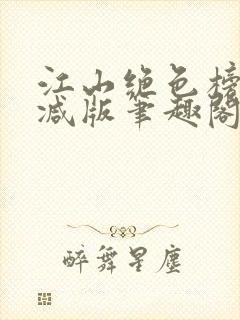 江山绝色榜
减版笔趣阁
醉舞星尘